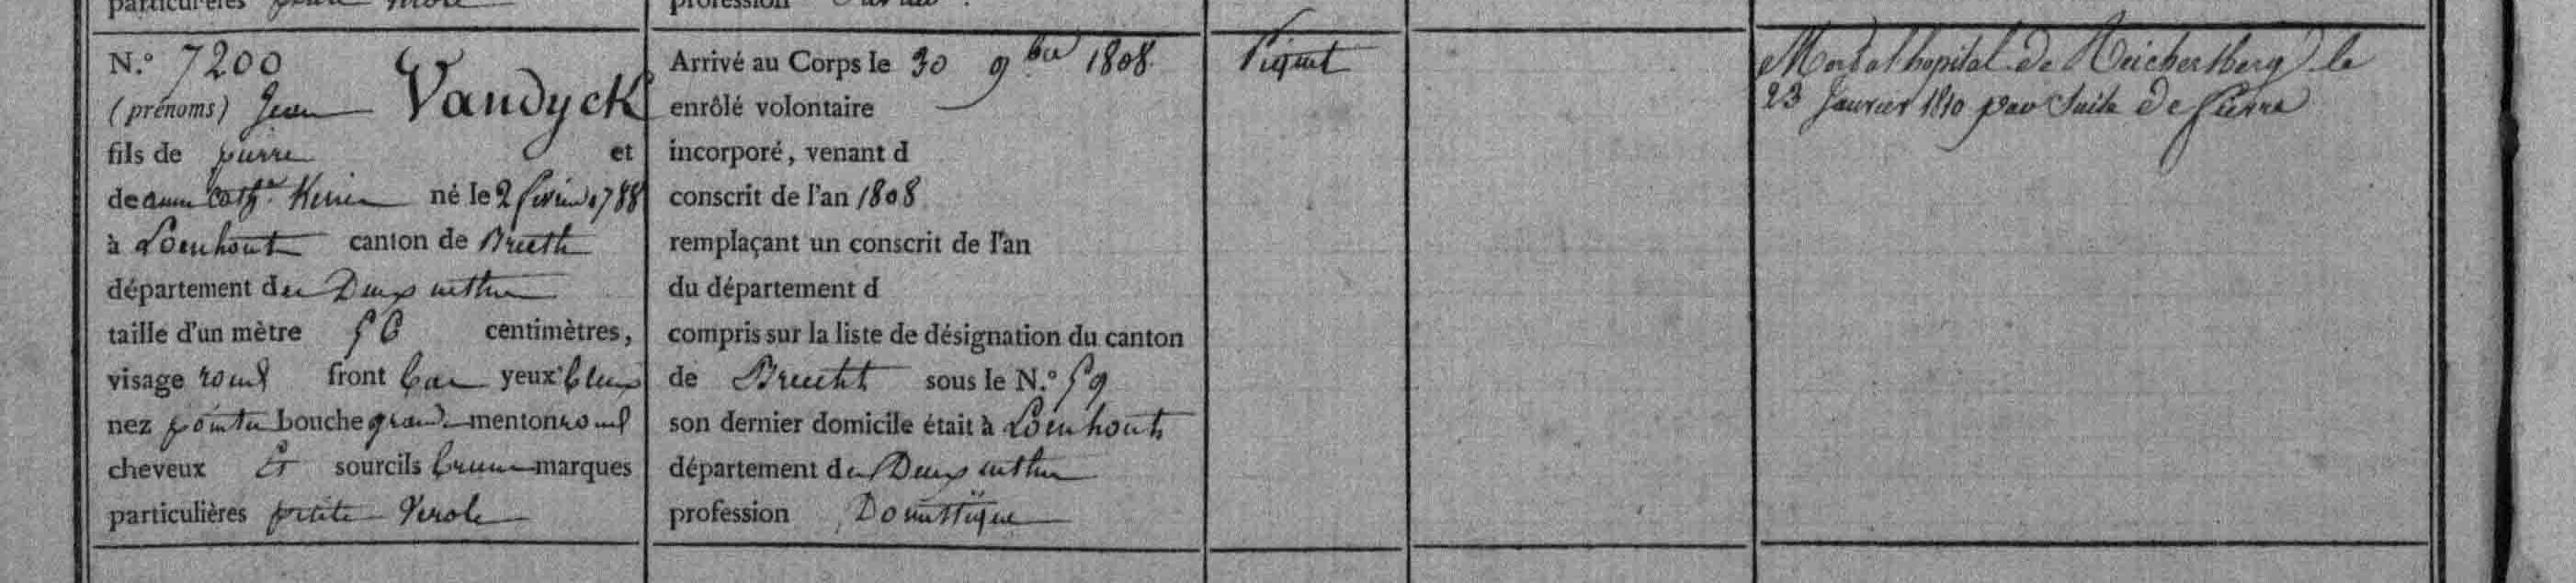 particulières petite verole
profession
N.º 7200
(prénoms) Jean Vandyck
fils de pierre et
de anne Cath.ne né le 2 fevrier 1788
à Loenhout canton de Brecht
département des Deux nethes
taille d'un mètre 56 centimètres,
visage rond front bas yeux bleus
nez pointu bouche grande menton rond
cheveux Et sourcils bruns marques
particulières petite verole
Arrivé au Corps le 30 9bre 1808
enrôlé volontaire
incorporé, venant d
conscrit de l'an 1808
remplaçant un conscrit de l'an
du département d
compris sur la liste de désignation du canton
de Brecht sous le N.º 59
son dernier domicile était à Loenhout
département des Deux nethes
profession Domestique
Piquet
Mort a l'hopital de Reichersberg le
23 Janvier 1810 par Suite de fievre